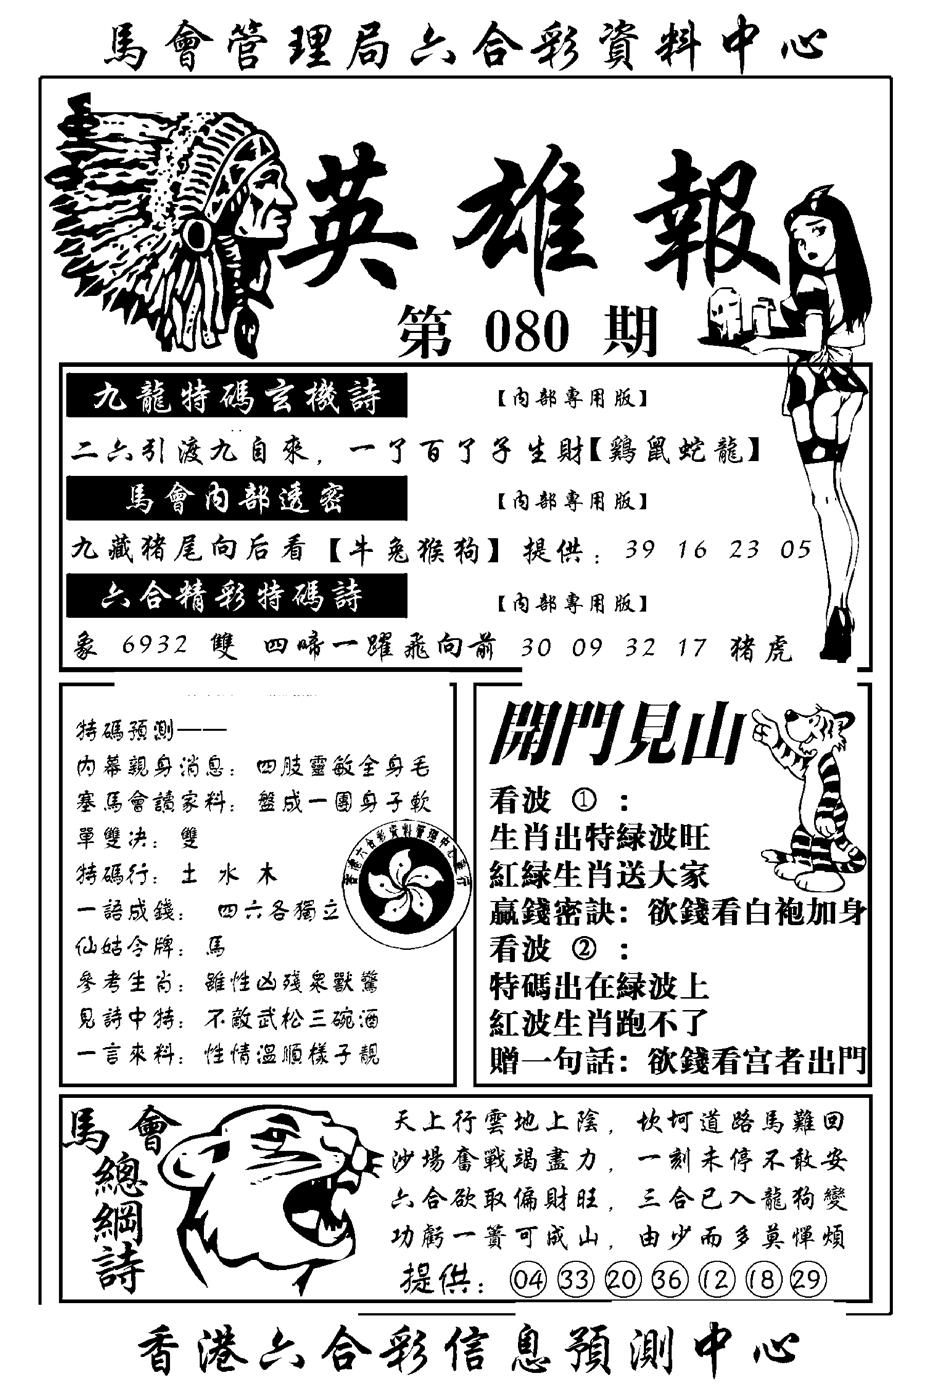 馬會管理局六合彩資料中心
英雄報
第 080 期
九龍特碼玄機詩 【內部專用版】
二六引渡九自來，一了百了子生財【鷄鼠蛇龍】
馬會內部透密 【內部專用版】
九藏猪尾向后看【牛兔猴狗】 提供：39 16 23 05
六合精彩特碼詩 【內部專用版】
象 6932 雙 四啼一躍飛向前 30 09 32 17 猪虎
特碼預測——
內幕親身消息：四肢靈敏全身毛
塞馬會讀家料：盤成一團身子軟
單雙决：雙
特碼行：土 水 木
一語成錢： 四六各獨立
仙姑令牌：馬
參考生肖：雖性凶殘衆獸驚
見詩中特：不敵武松三碗酒
一言來料：性情溫順樣子靚
開門見山
看波 ①：
生肖出特緑波旺
紅緑生肖送大家
贏錢密訣：欲錢看白袍加身
看波 ②：
特碼出在緑波上
紅波生肖跑不了
贈一句話：欲錢看宫者出門
馬會
總綱詩
天上行雲地上陰，坎坷道路馬難回
沙場奮戰竭盡力，一刻未停不敢安
六合欲取偏財旺，三合已入龍狗變
功虧一簣可成山，由少而多莫憚煩
提供：04 33 20 36 12 18 29
香港六合彩信息預測中心